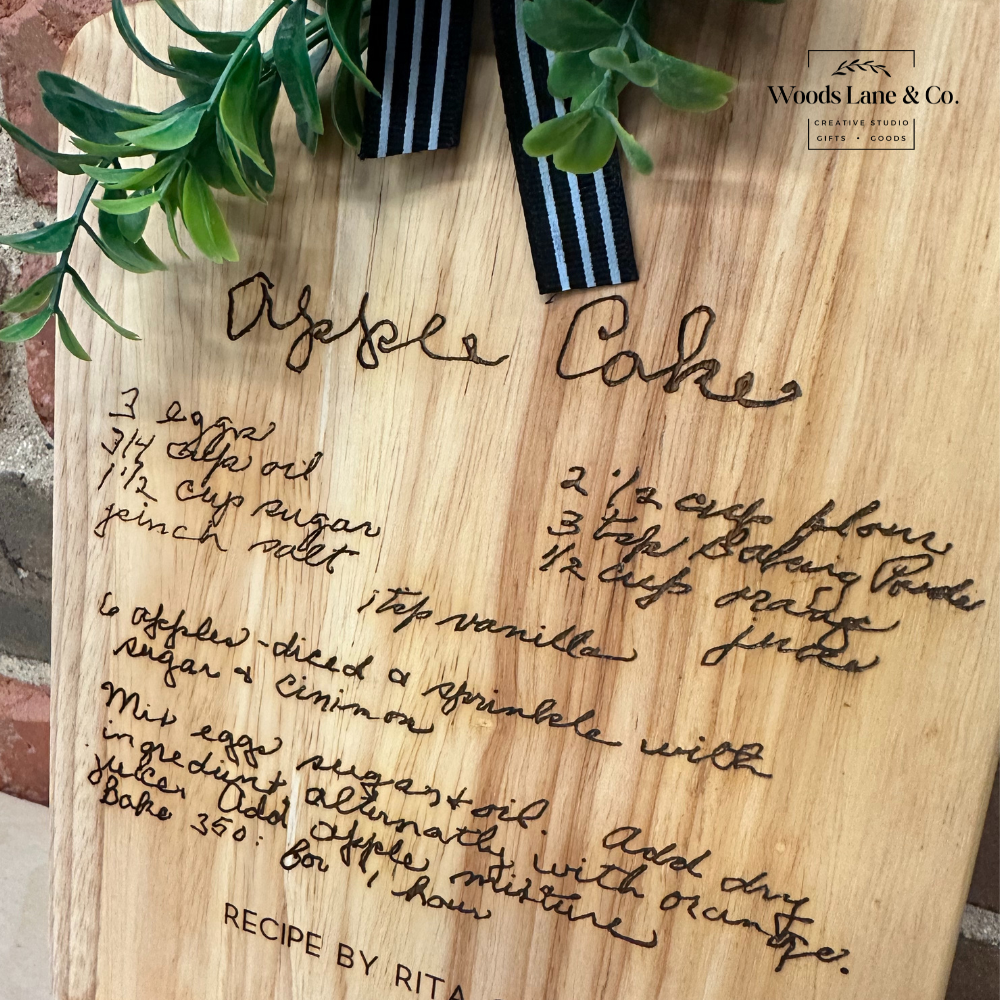 Woods Lane & Co.
CREATIVE STUDIO
GIFTS • GOODS
Apple Cake
3 eggs
3/4 cup oil
1 1/2 cup sugar
pinch salt
2 1/2 cup flour
3 tsp Baking Powder
1/2 cup orange
juice
1 tsp vanilla
6 apples - diced & sprinkle with
sugar + cinimon
Mix eggs sugar + oil. Add dry
ingredient alternatly with orange
juice. Add apple mixture.
Bake 350° for 1 hour
RECIPE BY RITA